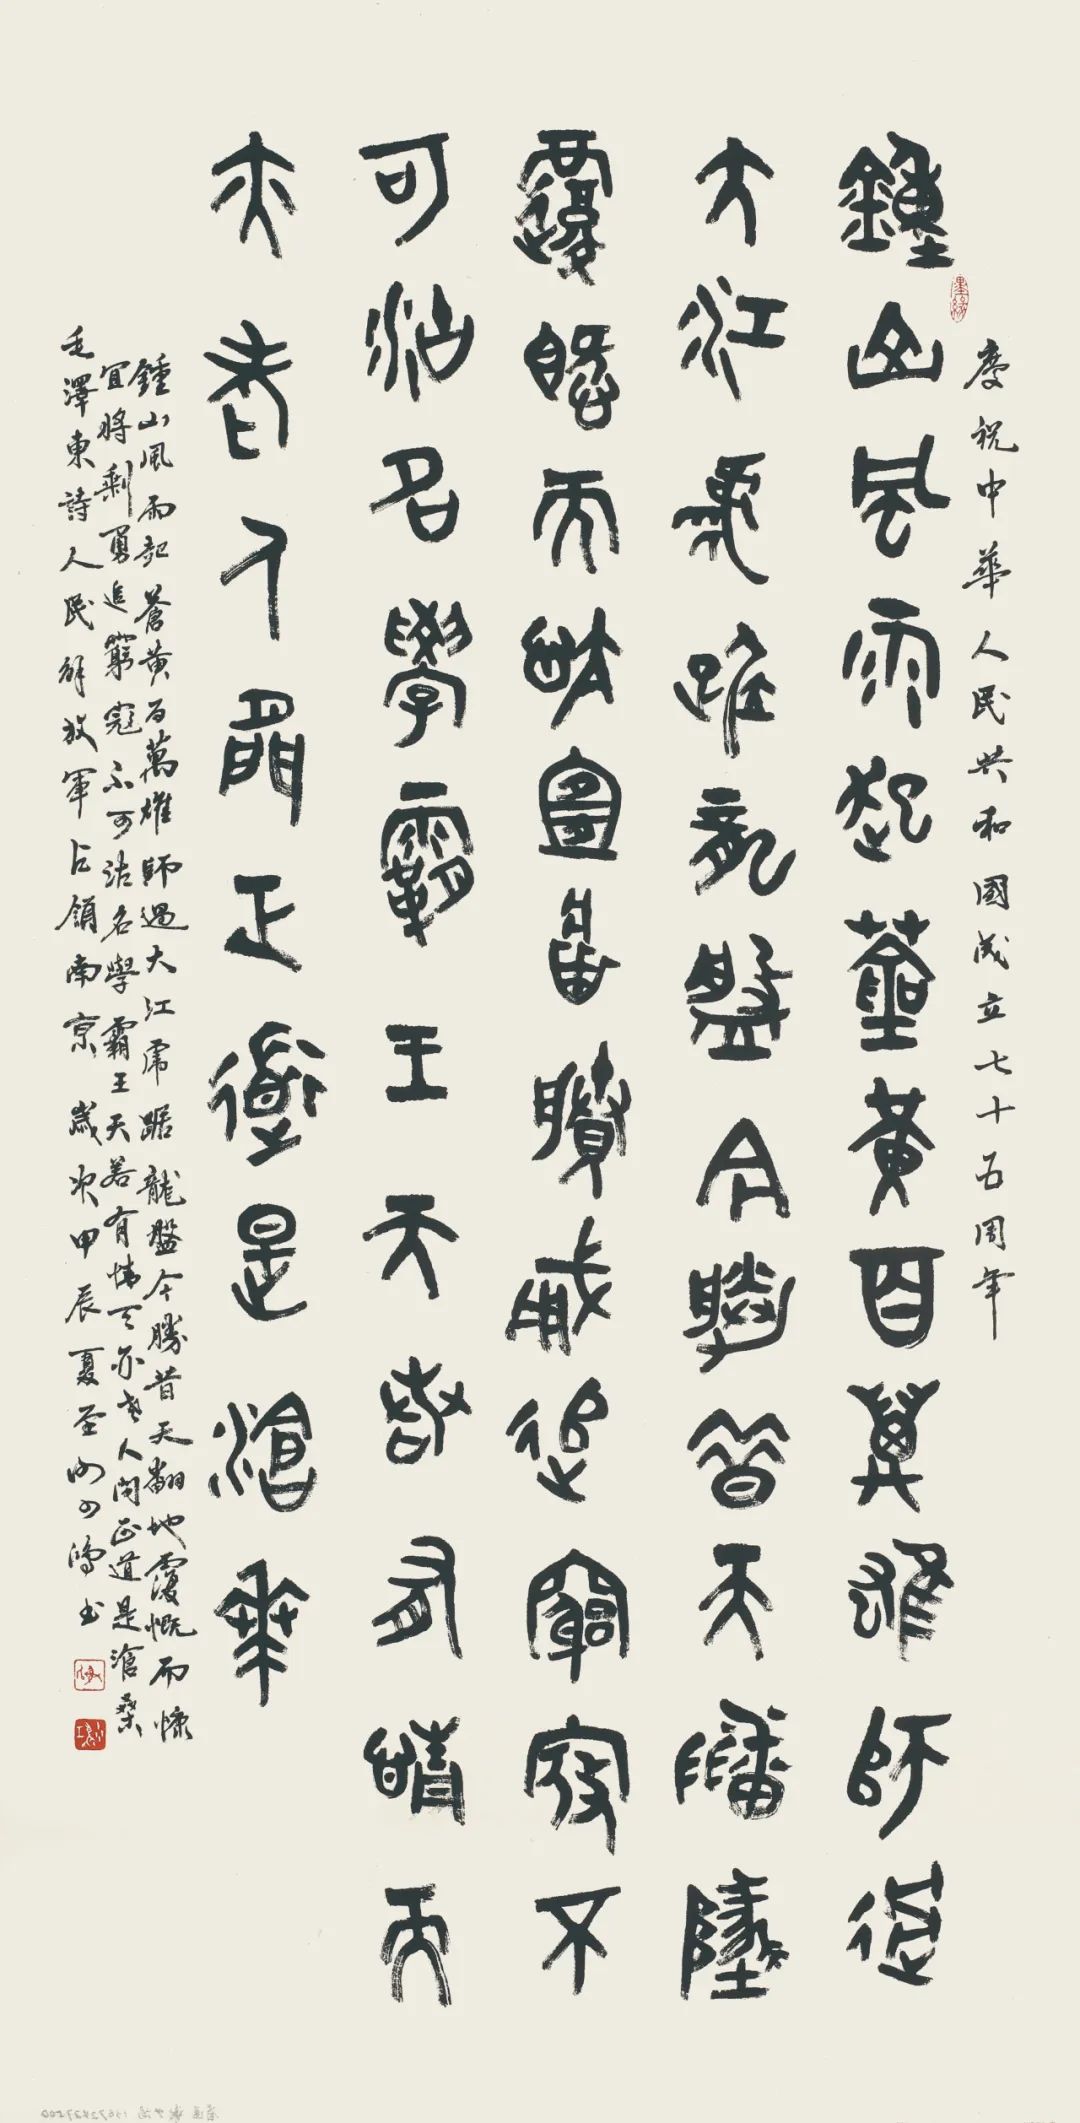 慶祝中華人民共和國成立七十五周年
鍾山風雨起蒼黃百萬雄師過
大江虎踞龍盤今勝昔天翻地
覆慨而慷宜將剩勇追窮寇不
可沽名學霸王天若有情天
亦老人間正道是滄桑
鍾山風雨起蒼黃百萬雄師過大江虎踞龍盤今勝昔天翻地覆慨而慷
宜將剩勇追窮寇不可沽名學霸王天若有情天亦老人間正道是滄桑
毛澤東詩人民解放軍占領南京 歲次甲辰夏至 少鴻书